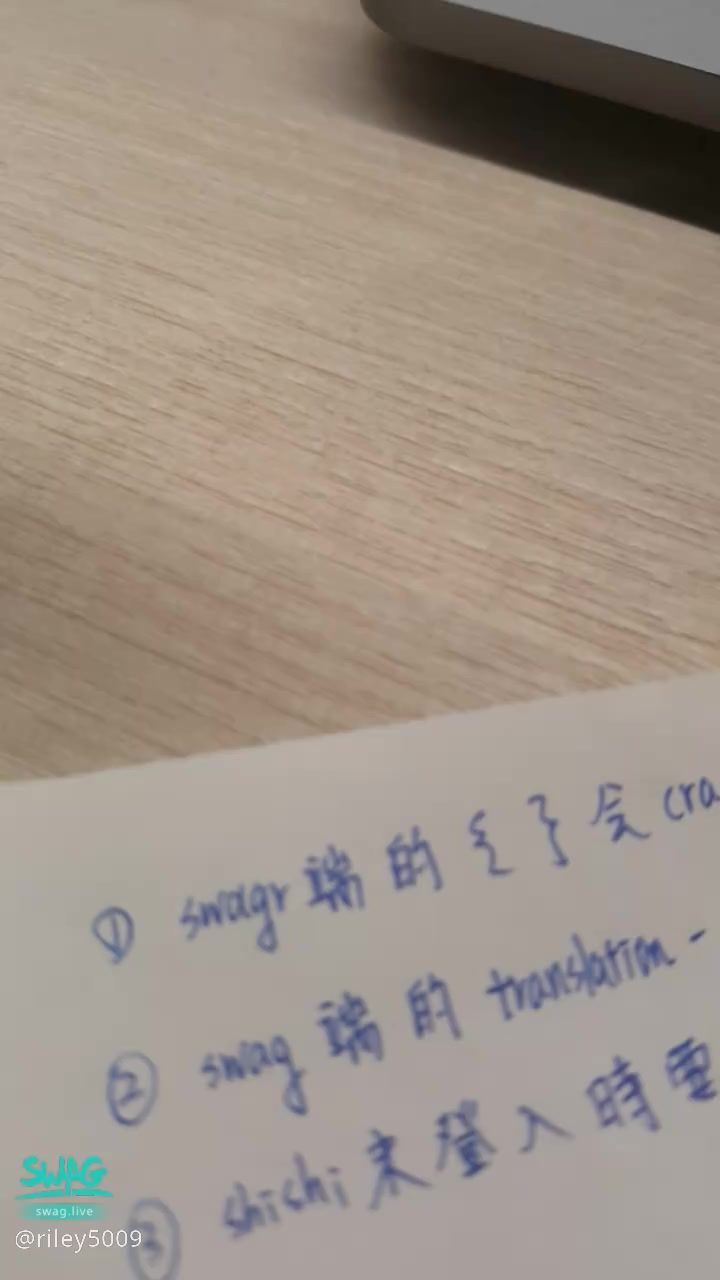 ① swagr 端的 ミ了会 cra
② swag 端的 translation -
③ shishi 未登入時
SWAG
swag.live
@riley5009